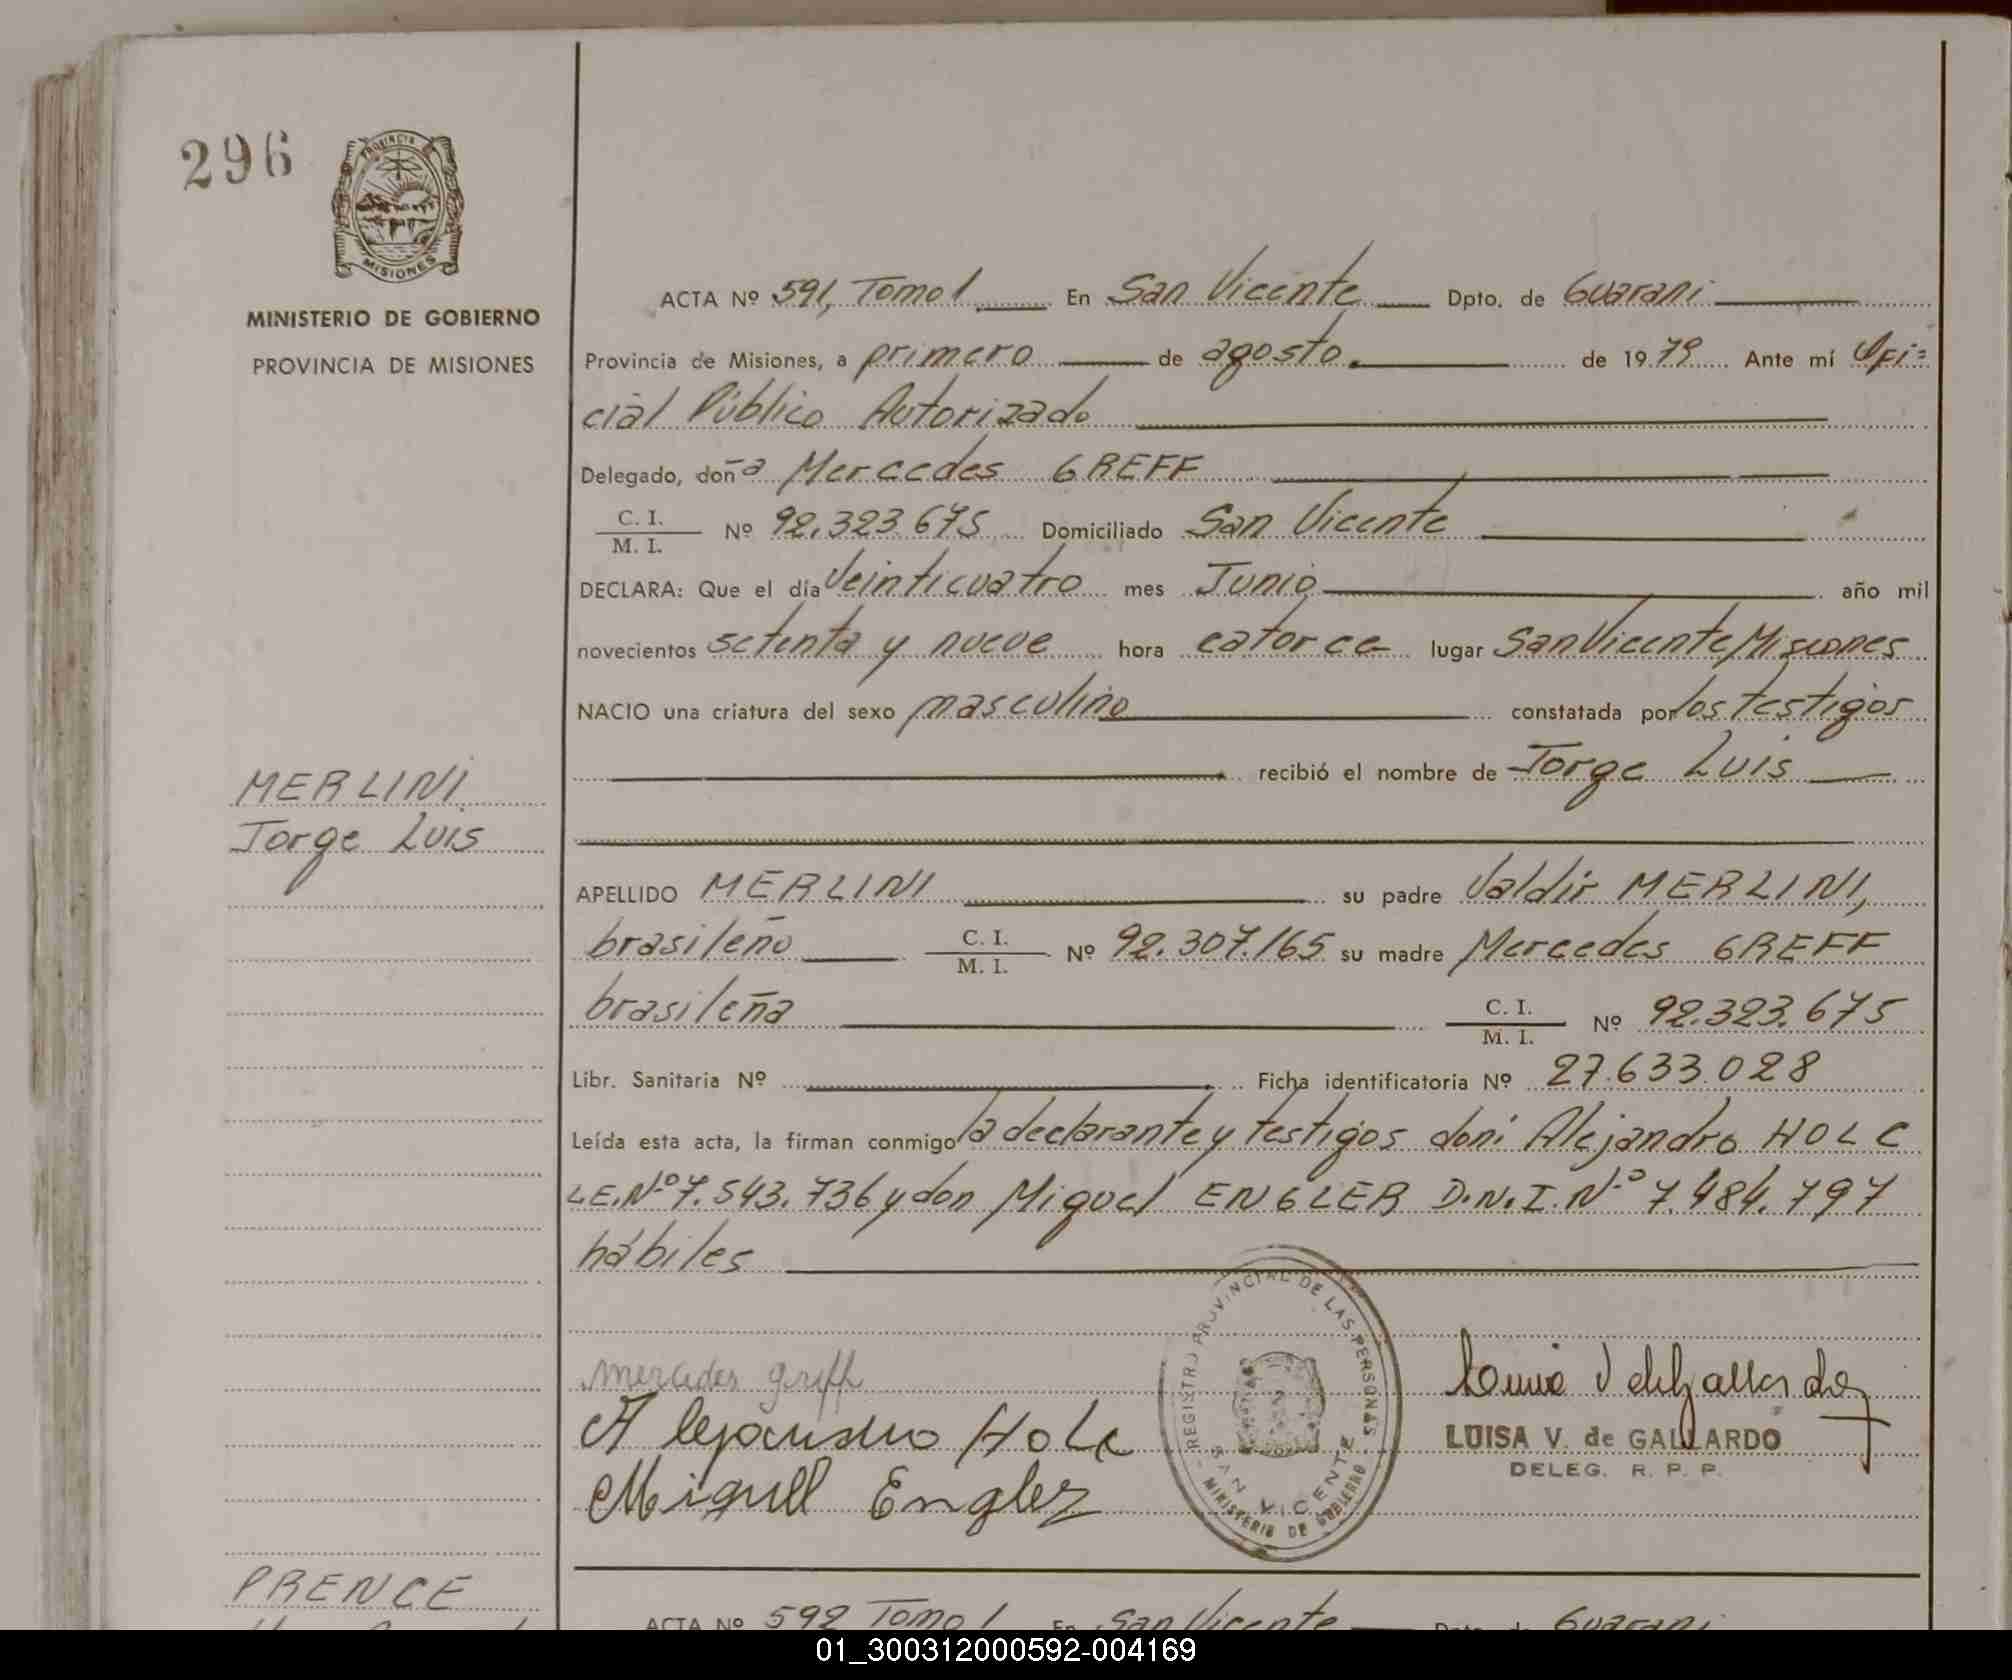 296
PROVINCIA
MISIONES
MINISTERIO DE GOBIERNO
PROVINCIA DE MISIONES
ACTA Nº 591, Tomo 1 En San Vicente Dpto. de Guarani
Provincia de Misiones, a primero de agosto. de 1979 Ante mí Ofi=
cial Público Autorizado
Delegado, doña Mercedes GREFF
C. I.
M. I. Nº 92.323.675 Domiciliado San Vicente
DECLARA: Que el día Veinticuatro mes Junio año mil
novecientos setenta y nueve hora catorce lugar San Vicente, Misiones
NACIO una criatura del sexo masculino constatada por los testigos
recibió el nombre de Jorge Luis
MERLINI
Jorge Luis
APELLIDO MERLINI su padre Valdir MERLINI,
brasileño C. I.
M. I. Nº 92.307.165 su madre Mercedes GREFF
brasileña C. I.
M. I. Nº 92.323.675
Libr. Sanitaria Nº Ficha identificatoria Nº 27.633.028
Leída esta acta, la firman conmigo la declarante y testigos doni Alejandro HOLC
L.E.Nº 7.543.736 y don Miguel ENGLER D.N.I.Nº 7.484.797
hábiles
mercedes greff
Alejandro Holc
Miguel Engler
REGISTRO PROVINCIAL DE LAS PERSONAS
SAN VICENTE
MINISTERIO DE GOBIERNO
LUISA V. de GALLARDO
DELEG. R. P. P.
PRENCE
ACTA Nº 592 Tomo 1 En San Vicente Dpto. de Guarani
01_300312000592-004169